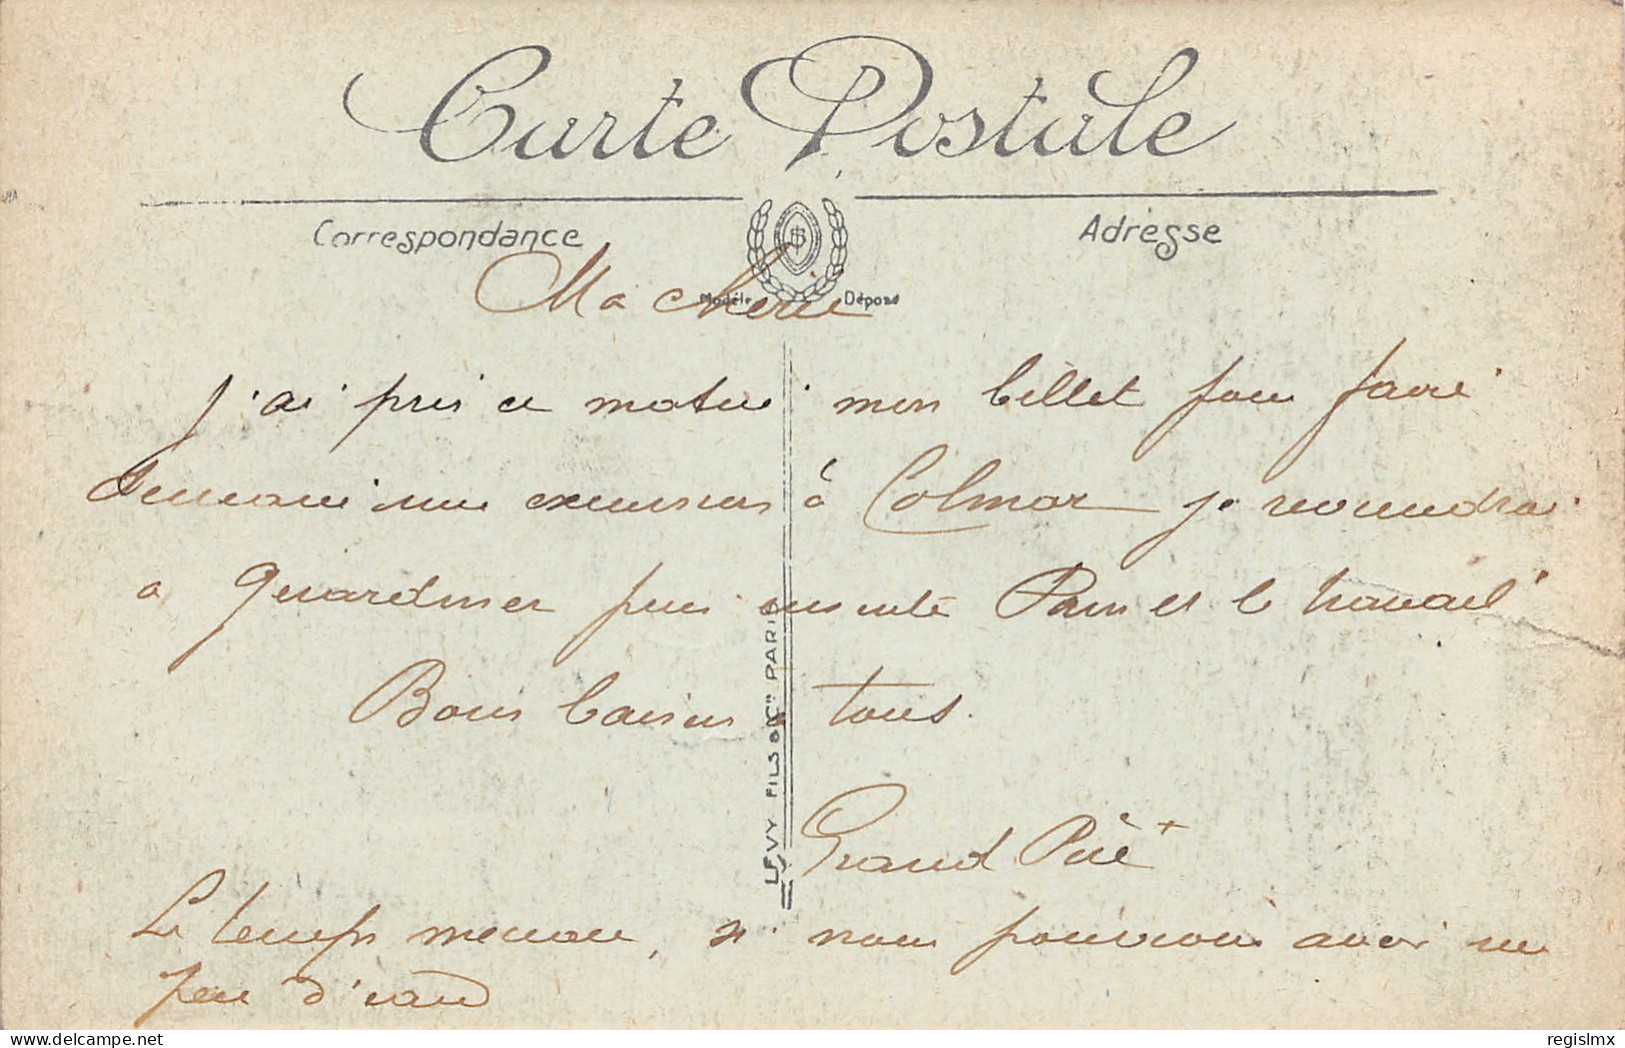 Carte Postale
Correspondance
Adresse
Modèle Déposé
Ma cherie
J'ai pris ce matin mon billet pour faire
demain une excursion à Colmar je reviendrai
a Gerardmer puis ensuite Paris et le travail
Bons baisers tous.
Grand Père
Le temps menace, si nous pouvions avoir un
peu d'eau
LEVY FILS & Cie PARIS
regislmx